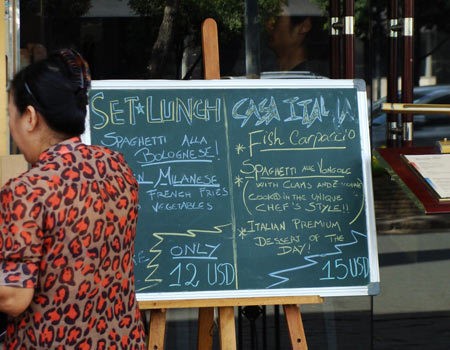 SET★LUNCH
SPAGHETTI ALLA
BOLOGNESE!
MILANESE
FRENCH FRIES
VEGETABLES
ONLY
12 USD
CASA ITALIA
* Fish Carpaccio
SPAGHETTI ALLE VONGOLE
* WITH CLAMS AND
(COOKED IN THE UNIQUE
CHEF'S STYLE!!)
* ITALIAN PREMIUM
DESSERT OF THE
DAY!
15 USD